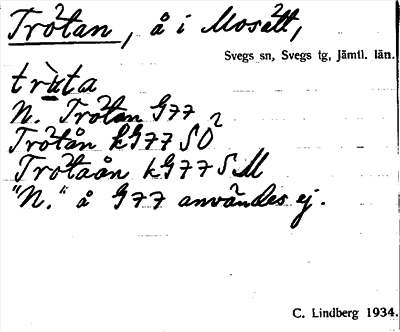 Trötan, å i Mosätt,
Svegs sn, Svegs tg, Jämtl. län.
trùta
N. Trötan G77
Trötån kG77 SÖ
Trötaån kG77 SM
"N." å G77 användes ej.
C. Lindberg 1934.